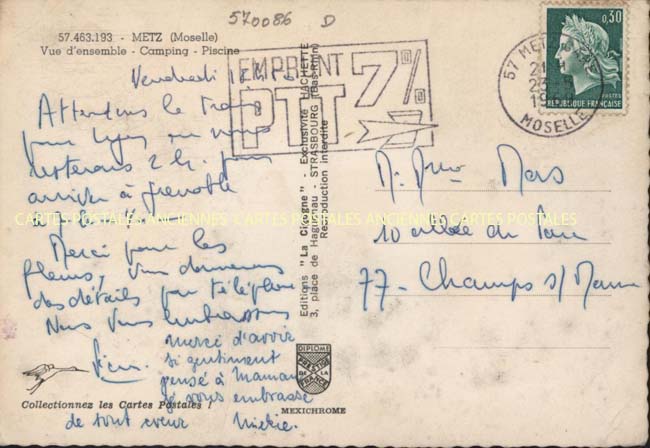 570086 D
57.463.193 - METZ (Moselle)
Vue d'ensemble - Camping - Piscine
Vendredi
EMPRUNT
PTT 7%
0,30
POSTES
REPUBLIQUE FRANÇAISE
57 METZ
MOSELLE
Attendons le
pour Lyon ou nous
resterons 2 h. pour
arriver à Grenoble
Merci pour les
fleurs, Vous donnerons
des détails par téléphone
Nous Vous embrassons
merci d'avoir
si gentiment
pensé à Maman
je vous embrasse
de tout coeur
Editions "La Cigogne" - Exclusivité HACHETTE
3, place de Haguenau - STRASBOURG (Bas-Rhin)
Reproduction interdite
Mr Mme Mars
10 allée du Parc
77 - Champs s/ Marne
CARTES POSTALES ANCIENNES CARTES POSTALES ANCIENNES CARTES POSTALES
DIPLOME
PRESTIGE
DE LA
FRANCE
MEXICHROME
Collectionnez les Cartes Postales !